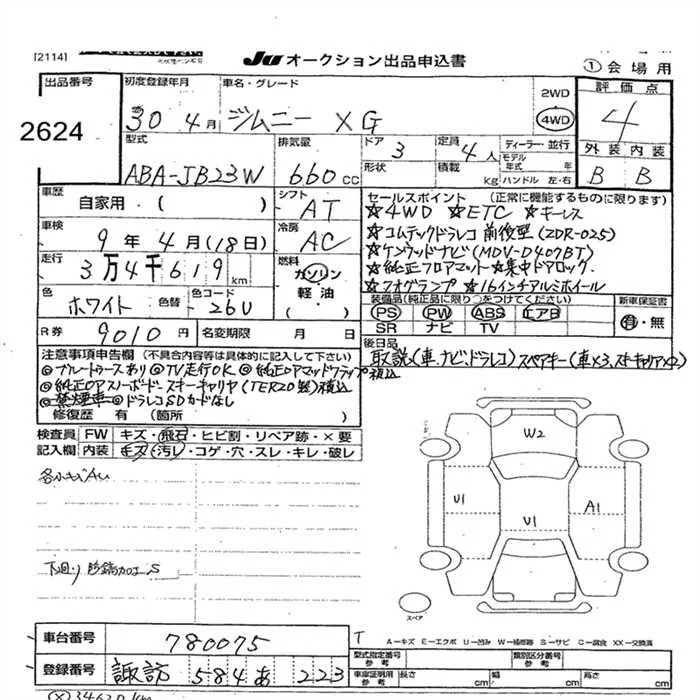 [2114]
JU オークション出品申込書
①会場用
出品番号
2624
初度登録年月
30 4月
車名・グレード
ジムニー XG
2WD
4WD
評価点
4
型式
ABA-JB23W
排気量
660cc
ドア
3
定員
4人
ディーラー・並行
モデル年式 年
形状
積載 kg
ハンドル 左・右
外装 内装
B B
車歴
自家用・( )
シフト
AT
車検
9年4月(18日)
冷房
AC
走行
3万4千619km
燃料
ガソリン
軽油( )
色
ホワイト
色替
色コード
26U
R券
9010円
名変期限 月 日
セールスポイント (正常に機能するものに限ります)
☆4WD ☆ETC ☆キーレス
☆コムテックドラレコ 前後型(ZDR-025)
☆ケンウッドナビ(MDV-D407BT)
☆純正フロアマット ☆集中ドアロック
☆フォグランプ ☆16インチアルミホイール
装備品(純正品に限り○をつけてください)
PS PW ABS エアB
SR ナビ TV
新車保証書
有・無
後日品
取説(車、ナビ、ドラレコ)スペアキー(車×3、スキーキャリア×2)
積込
注意事項申告欄 (不具合内容等は具体的に記入して下さい)
◎ブルートゥースあり ◎TV走行OK ◎純正OPマッドフラップ
◎純正OPスノーボード・スキーキャリヤ(TERZO製)積込
◎禁煙車 ◎ドラレコSDカードなし
修復歴 有 (箇所 )
検査員記入欄
FW キズ・飛石・ヒビ割・リペア跡・×要
内装 キズ・汚レ・コゲ・穴・スレ・キレ・破レ
各小キズAu
下廻り 防錆加工S
W2
U1
U1
A1
スペア
T A-キズ E-エクボ U-凹み W-補修跡 S-サビ C-腐食 XX-交換済
車台番号
780075
登録番号
諏訪 584 あ 223
型式指定番号 参考
類別区分番号 参考
車庫証明用 参考
長さ cm
幅 cm
高さ cm